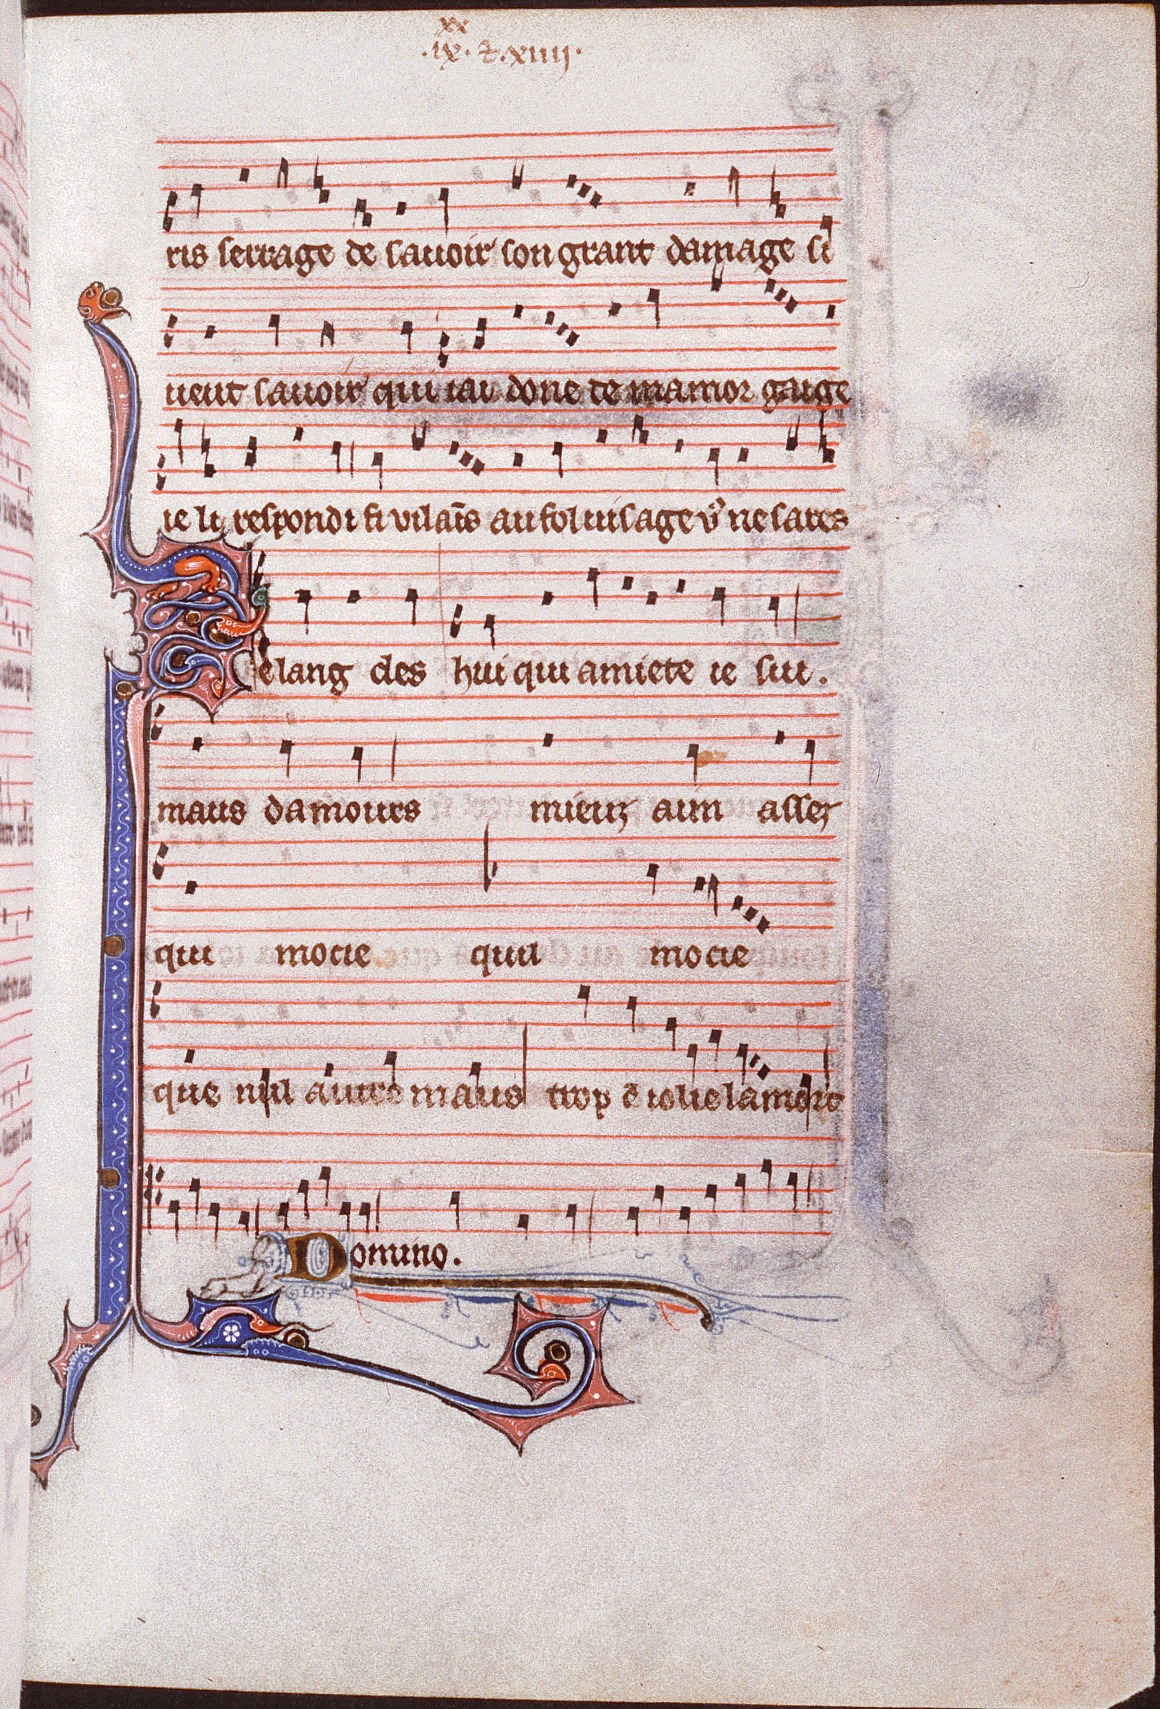 xx
.ix. ⁊.xiiii.
ris serrage de sauoir son grant damage si
ueut sauoir qui iai done te mamor gaige
ie li respondi fi vilaīs au fol uisage v̾ ne sares
E lang des hui qui amiete ie sui.
maus damours mieuz aim assez
qui mocie quil mocie
que nul autre maus trop ē iolie la mort
Domino.